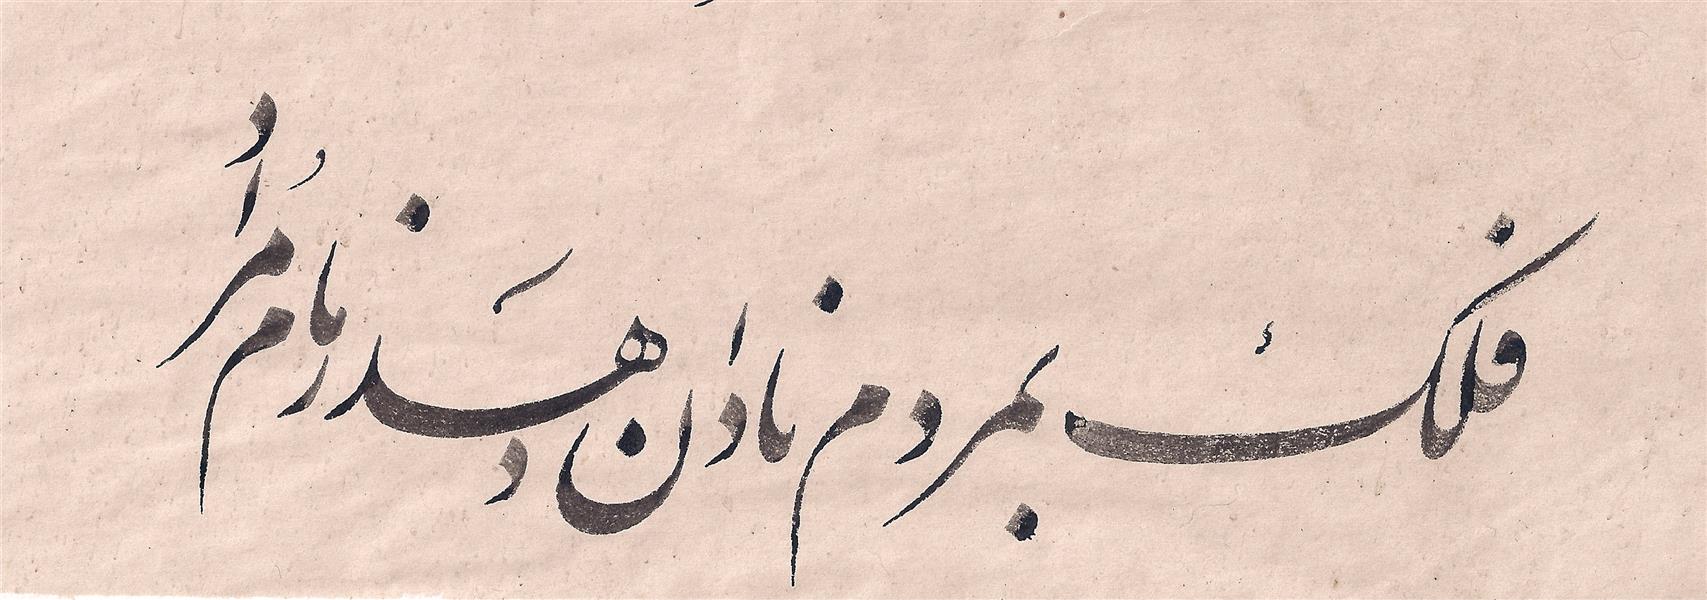 فلک بمردم نادان دهد زمام مراد